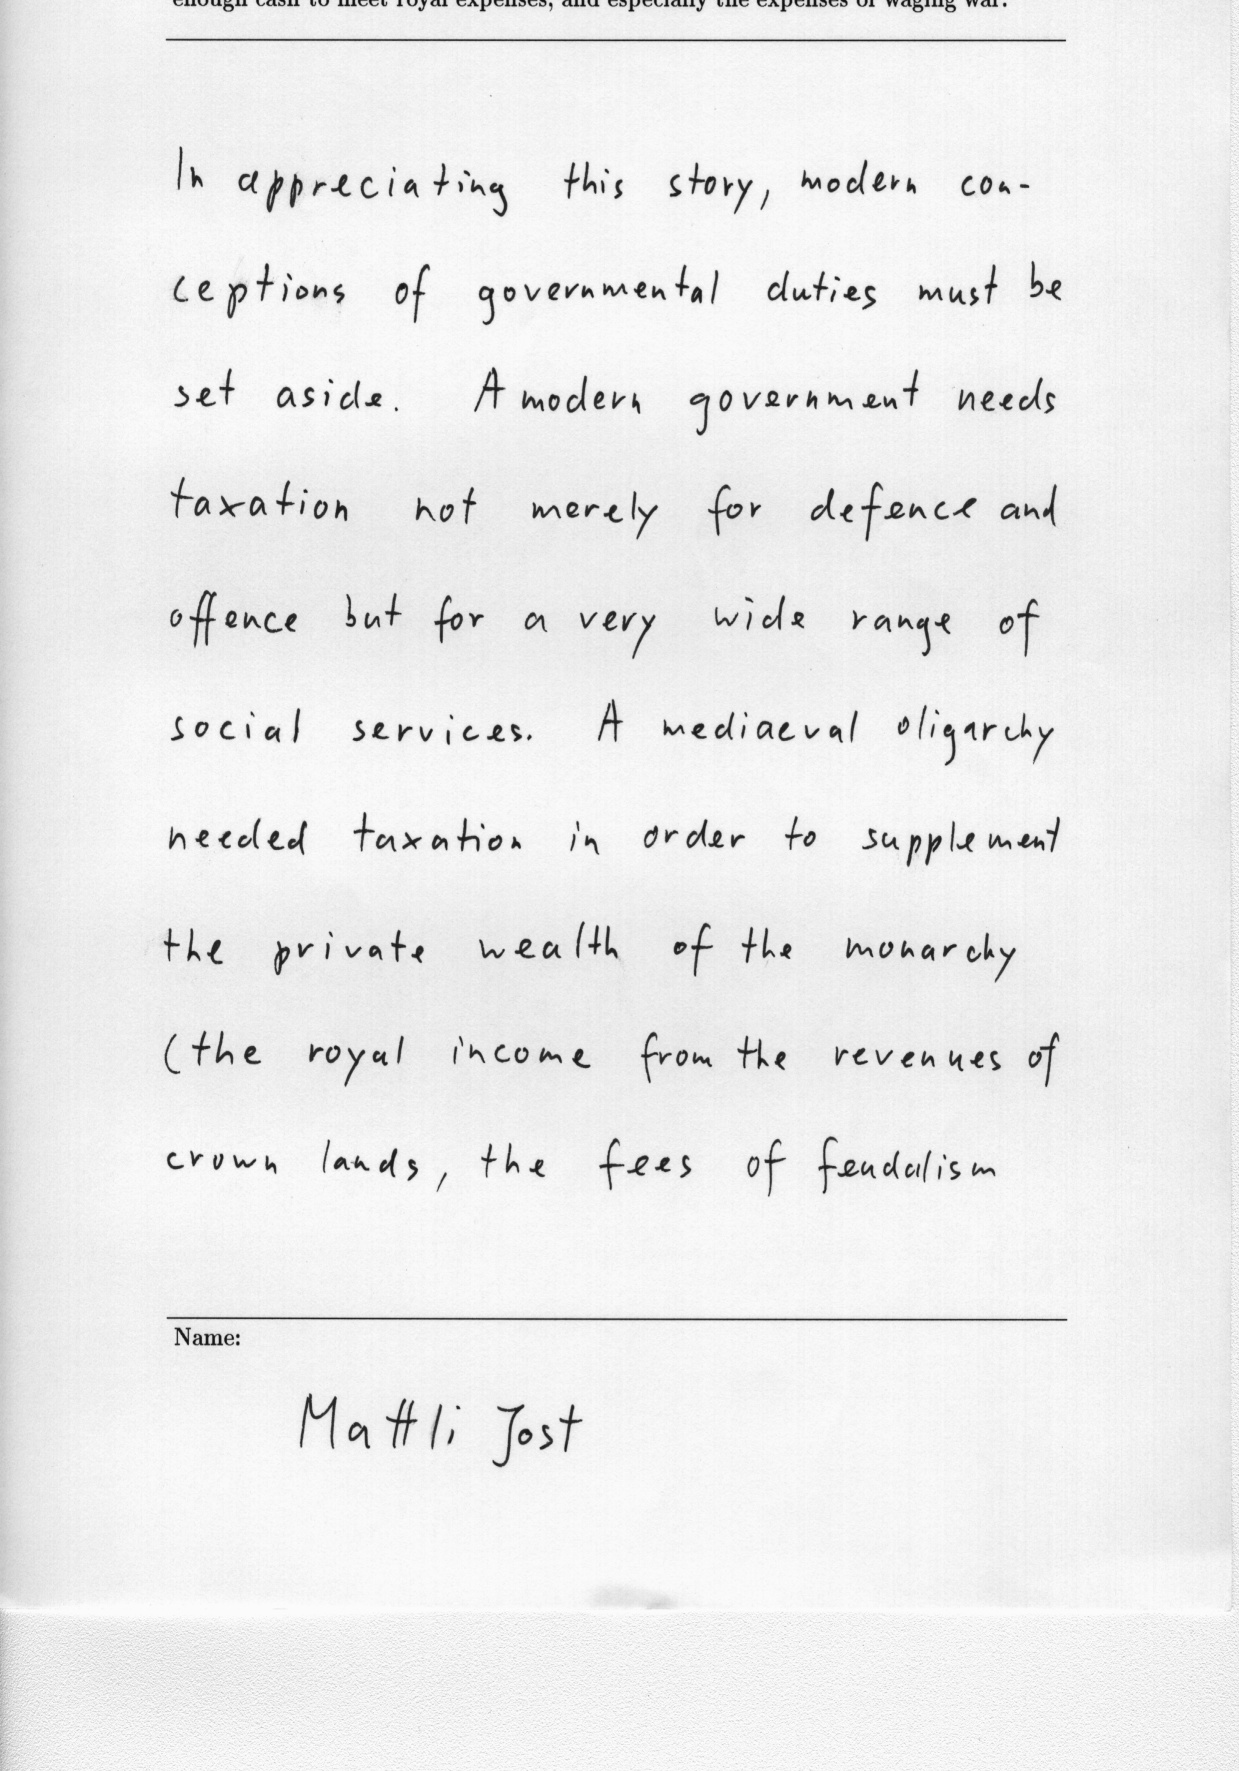 enough cash to meet royal expenses, and especially the expenses of waging war.
In appreciating this story, modern con-
ceptions of governmental duties must be
set aside. A modern government needs
taxation not merely for defence and
offence but for a very wide range of
social services. A mediaeval oligarchy
needed taxation in order to supplement
the private wealth of the monarchy
(the royal income from the revenues of
crown lands, the fees of feudalism
Name:
Mattli Jost